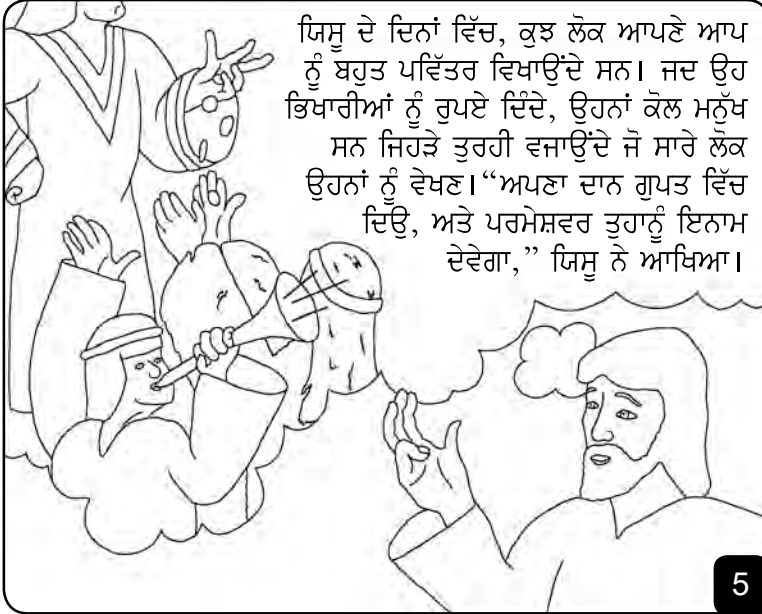 ਯਿਸੂ ਦੇ ਦਿਨਾਂ ਵਿੱਚ, ਕੁਝ ਲੋਕ ਆਪਣੇ ਆਪ
ਨੂੰ ਬਹੁਤ ਪਵਿੱਤਰ ਵਿਖਾਉਂਦੇ ਸਨ। ਜਦ ਉਹ
ਭਿਖਾਰੀਆਂ ਨੂੰ ਰੁਪਏ ਦਿੰਦੇ, ਉਹਨਾਂ ਕੋਲ ਮਨੁੱਖ
ਸਨ ਜਿਹੜੇ ਤੁਰਹੀ ਵਜਾਉਂਦੇ ਜੋ ਸਾਰੇ ਲੋਕ
ਉਹਨਾਂ ਨੂੰ ਵੇਖਣ। “ਅਪਣਾ ਦਾਨ ਗੁਪਤ ਵਿੱਚ
ਦਿਉ, ਅਤੇ ਪਰਮੇਸ਼ਵਰ ਤੁਹਾਨੂੰ ਇਨਾਮ
ਦੇਵੇਗਾ,” ਯਿਸੂ ਨੇ ਆਖਿਆ।
5